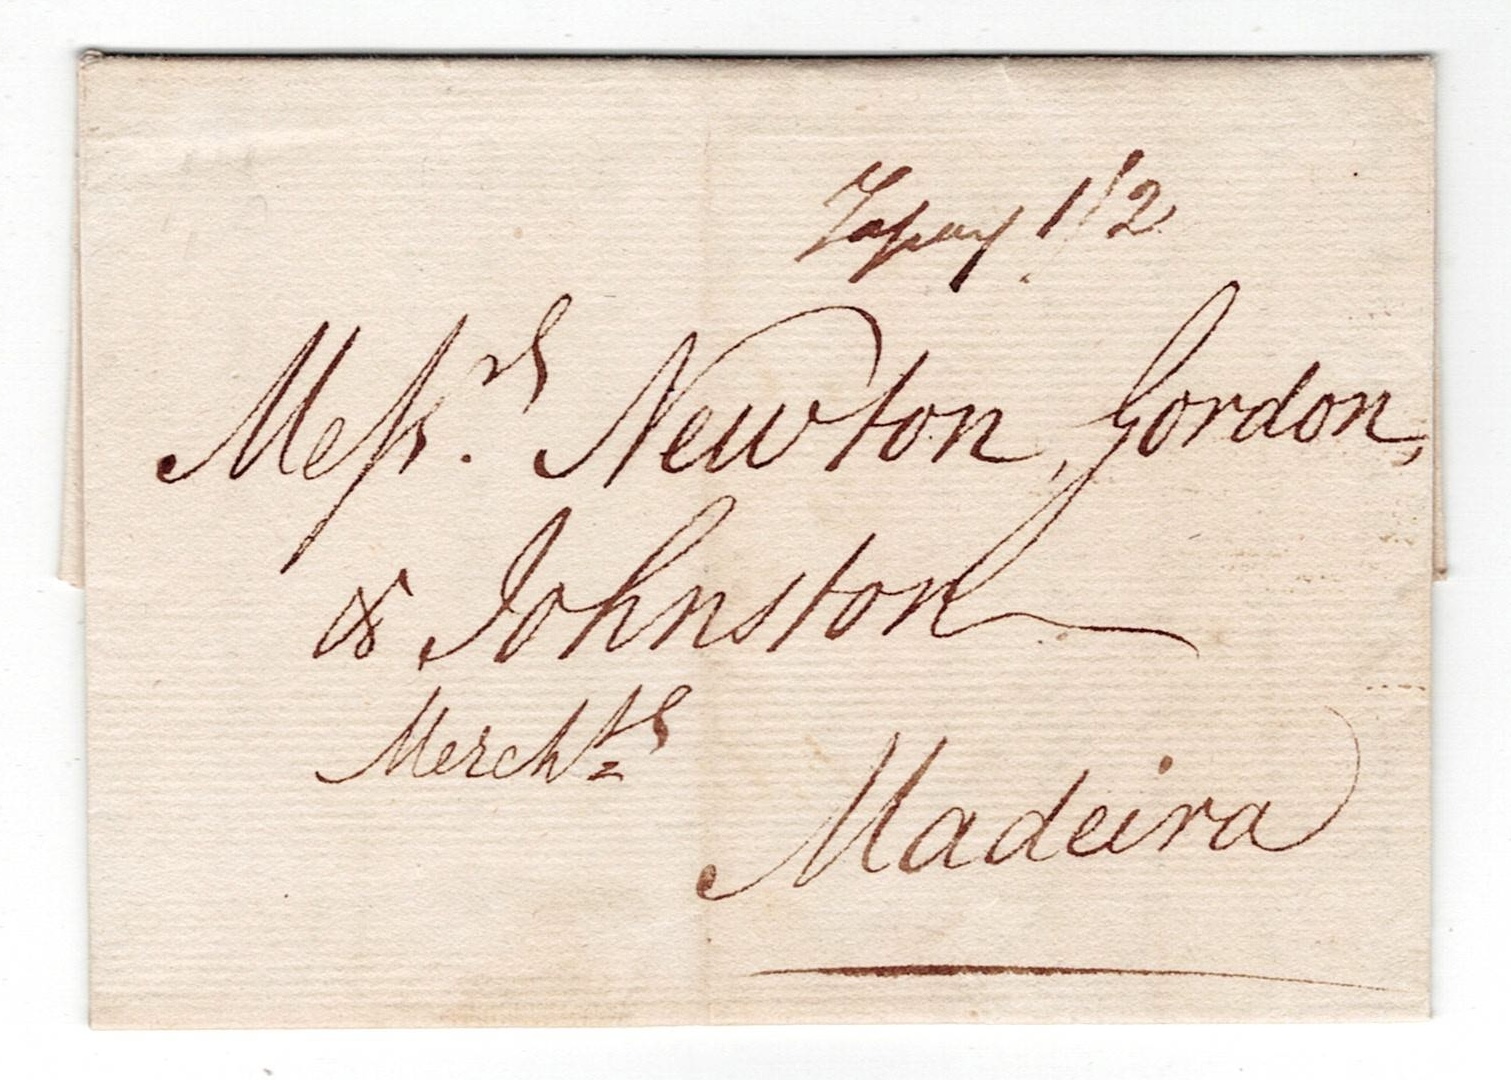 To pay 1/2
Messrs. Newton, Gordon,
& Johnston
Merchts
Madeira